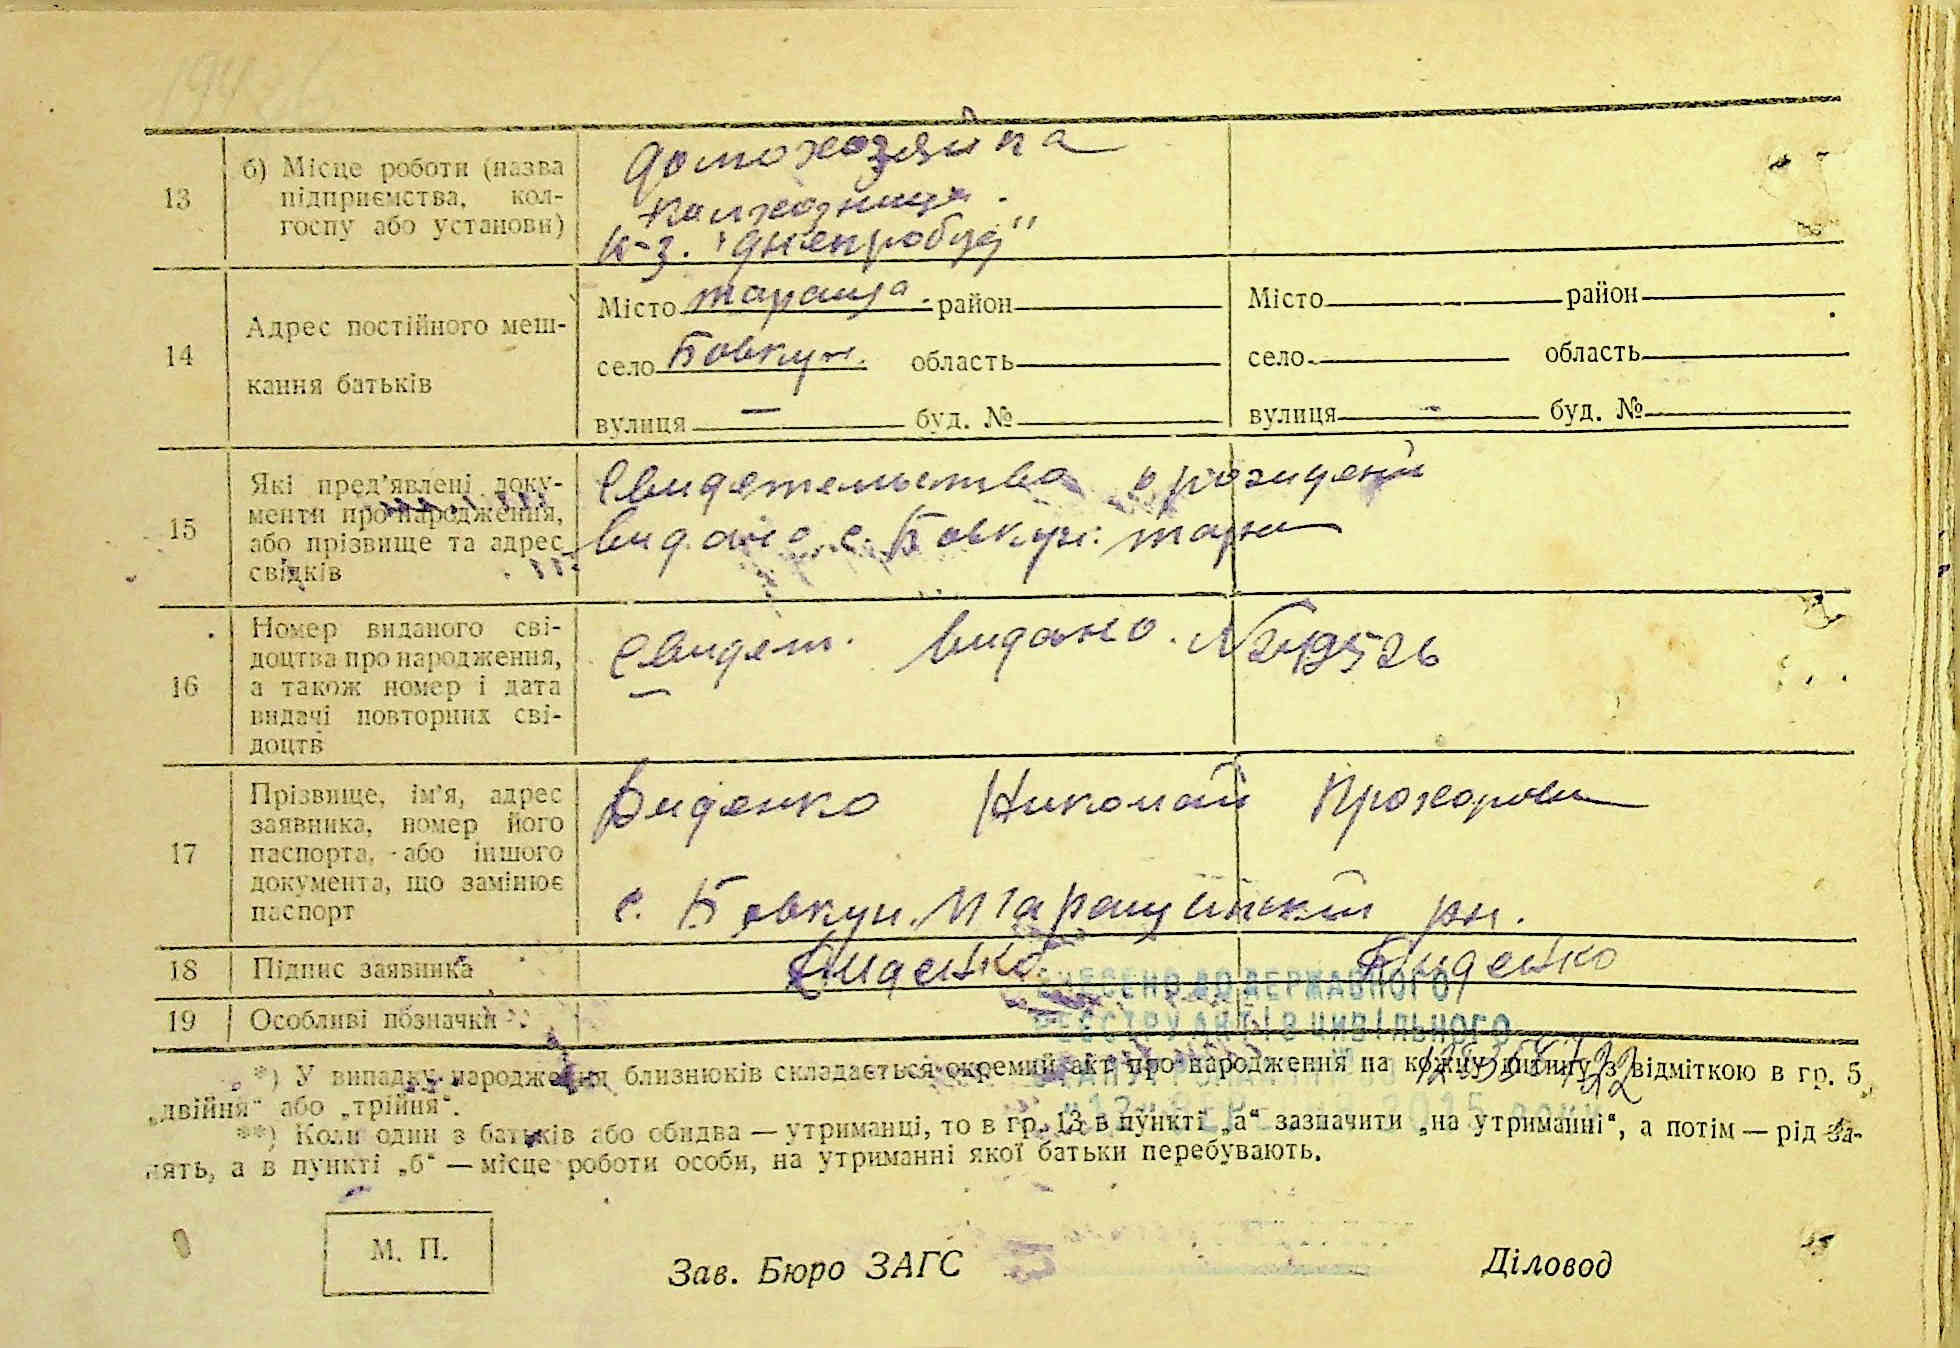 13
б) Місце роботи (назва
підприємства, кол-
госпу або установи)
домохозяйка
колхозница.
к-з. "Днепробуд"
14
Адрес постійного меш-
кання батьків
Місто Тараща район
село Бовкун. область
вулиця — буд. №
Місто район
село область
вулиця буд. №
15
Які пред'явлені доку-
менти про народження,
або прізвище та адрес
свідків
Свидетельства о рождени
видано с. Бовкун.
16
Номер виданого сві-
доцтва про народження,
а також номер і дата
видачі повторних сві-
доцтв
Свидет. видано. №
17
Прізвище, ім'я, адрес
заявника, номер його
паспорта, або іншого
документа, що замінює
паспорт
Диденко Николай Прохорови
с. Бовкун. Таращинский рн.
18
Підпис заявника
Диденко Диденко
19
Особливі позначки
ВНЕСЕНО ДО ДЕРЖАВНОГО
РЕЄСТРУ АКТІВ ЦИВІЛЬНОГО
*) У випадку народження близнюків складається окремий акт про народження на кожну дитину з відміткою в гр. 5
„двійня" або „трійня".
**) Коли один з батьків або обидва — утриманці, то в гр. 13 в пункті „а" зазначити „на утриманні", а потім — рід за-
нять, а в пункті „б" — місце роботи особи, на утриманні якої батьки перебувають.
М. П.
Зав. Бюро ЗАГС
Діловод